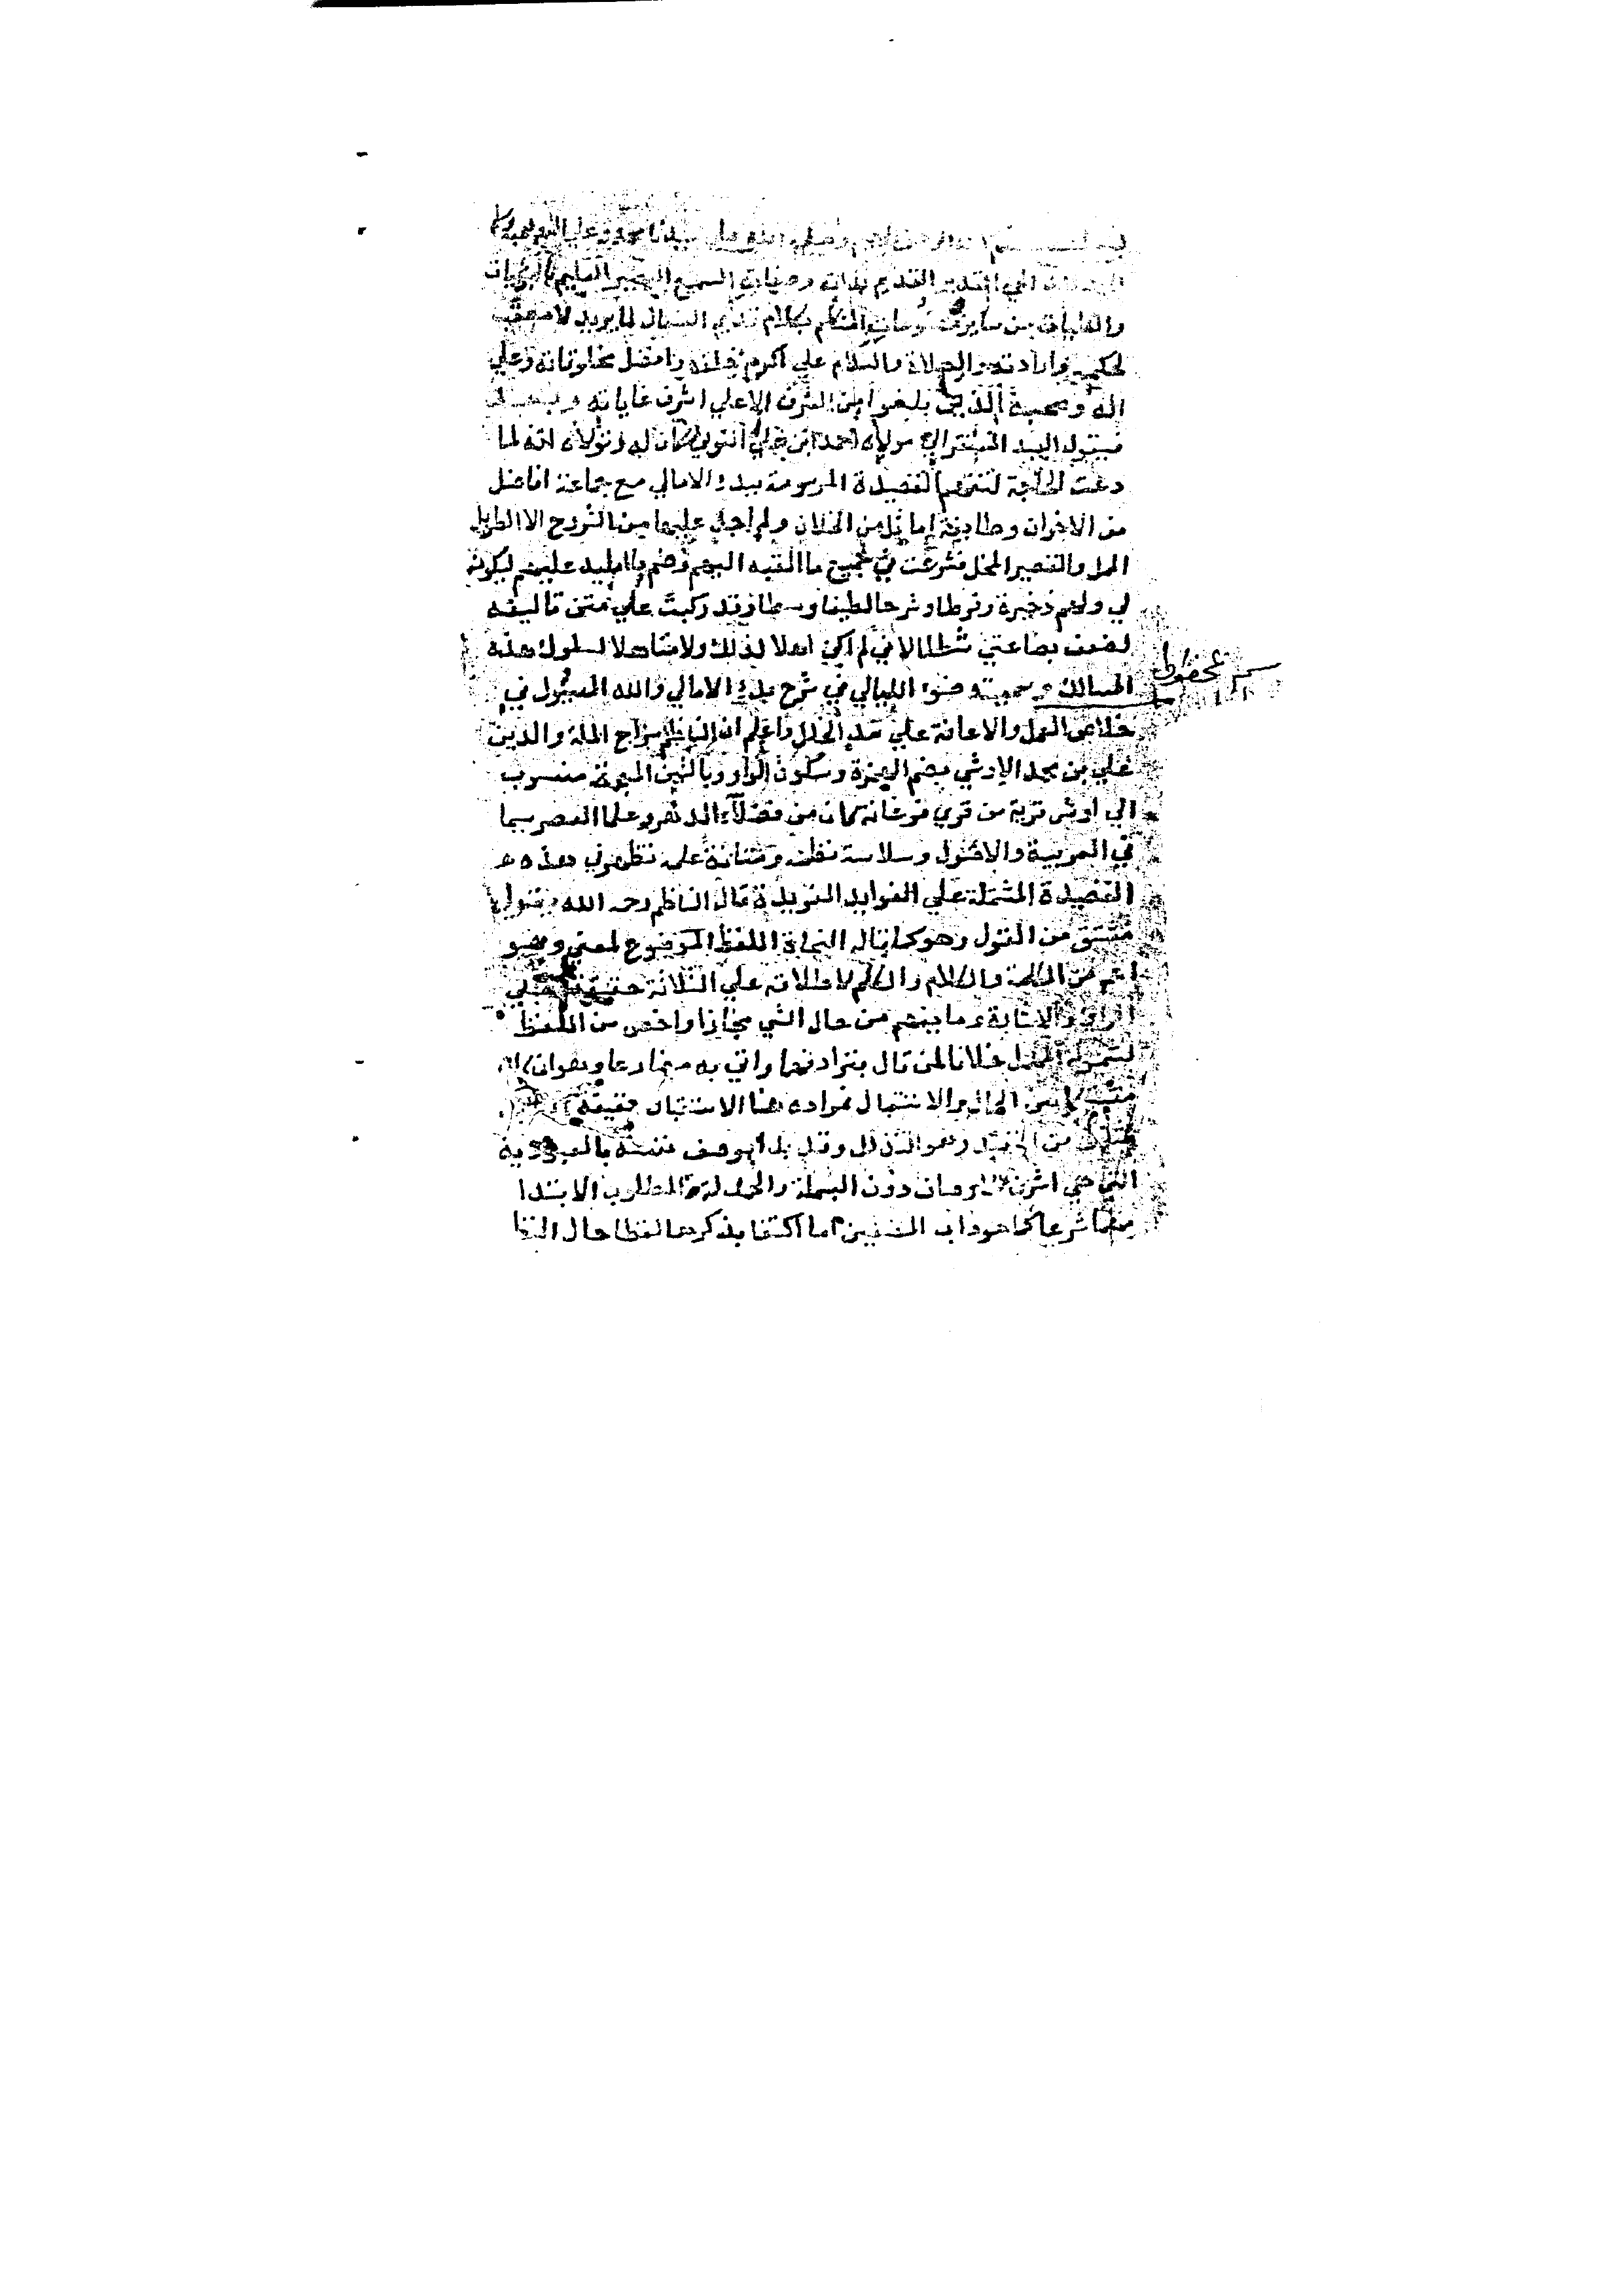 بسم الله الرحمن الرحيم وصلى الله على سيدنا محمد وعلى اله وصحبه وسلم
الحي القدير القديم بذاته وصفاته السميع البصير العليم بالجزيات
والكليات من ساير المتكلم بكلام قديم الفعال لما يريد لا معقب
لحكمه وارادته والصلاة والسلام علي اكرم خلقه وافضل مخلوقاته وعلي
اله وصحبه الذين بلغوا من الشرف الاعلي اشرف غاياته وبعد
فيقول العبد المفتقر الي مولاه احمد ابن علي كان له انه لما
دعت الحاجة القصيدة المرسومة ببدء الامالي مع جماعة افاضل
من الاخوان وطايفة اماثل من الخلان ولم اجد عليها من الشروح الا الطويل
الممل والقصير المخل فشرعت في جميع ما القيه اليهم وضم ما امليه عليهم ليكون
لي ولهم ذخيرة وفرطا وشرحا لطيفا وسطا وقد ركبت علي متن تاليفه
لضعف بضاعتي شططا لاني لم اكن اهلا لذلك ولا متاهلا لسلوك هذه
المسالك وسميته ضوء الليالي في شرح بدء الامالي والله المسؤل في
خلاص العمل والاعانة علي سد الخلل واعلم ان الناظم سراج الملة والدين
علي بن محمد الاوشي بضم الهمزة وسكون الواو وبالشين المعجمة منسوب
الي اوش قرية من قري فرغانه كان من فضلاء الدهر وعلما العصر سيما
في العربية والاصول وسلاسة نظمه ومتانة علمه تظهر في هذه
القصيدة المشتملة علي الفوايد الفريدة قال الناظم رحمه الله يقول
مشتق من القول وهو كما قاله النحاة اللفظ الموضوع لمعني وهو
اعم من الكلمة والكلام والكلم لاطلاقه علي الثلاثة حقيقة وعلي
الراي والاشارة وما يفهم من حال الشي مجازا واخص من اللفظ
لشموله المهمل خلافا لمن قال بترادفهما واتي به مضارعا وهو ان كان
مشتركا بين الحال والاستقبال فمراده هنا الاستقبال حقيقة
من التعبد وهو التذلل وقد بدا بوصف نفسه بالعبودية
التي هي اشرف الاوصاف دون البسملة والحمدلة المطلوب الابتدا
بهما شرعا كما هو داب المصنفين اما اكتفا بذكرهما لفظا حال النظا
محفوظ